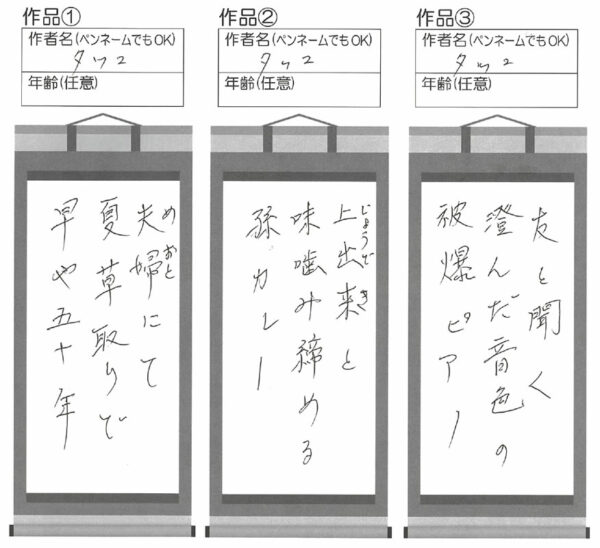 作品①
作者名(ペンネームでもOK)
タツコ
年齢(任意)
めおと
夫婦にて
夏草取りで
早や五十年
作品②
作者名(ペンネームでもOK)
タツコ
年齢(任意)
じょうでき
上出来と
味噛み締める
孫カレー
作品③
作者名(ペンネームでもOK)
タツコ
年齢(任意)
友と聞く
澄んだ音色の
被爆ピアノ